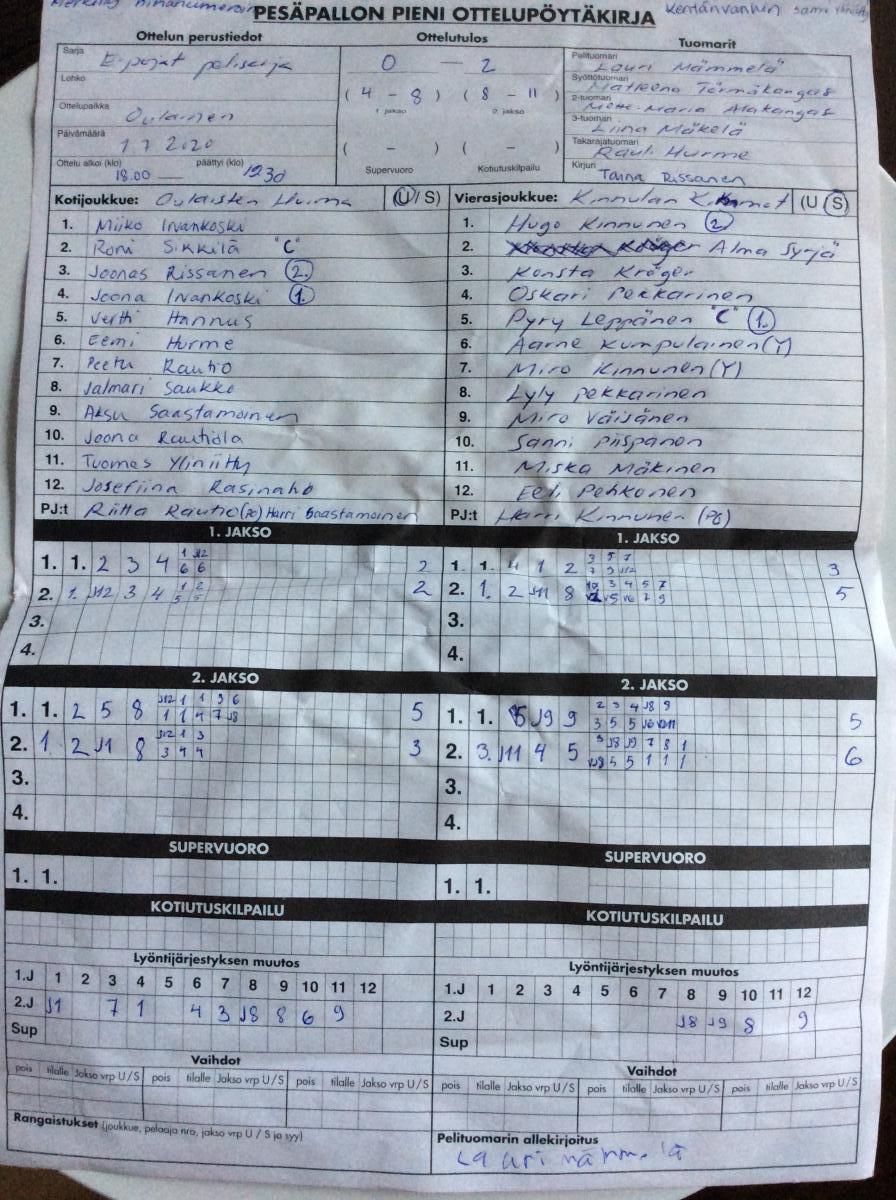 PESÄPALLON PIENI OTTELUPÖYTÄKIRJA
Kentänvanhin
Ottelun perustiedot
Ottelutulos
Tuomarit
Sarja E-pojat
Lohko
Ottelupaikka Oulainen
Päivämäärä 1 7 2020
Ottelu alkoi (klo) päättyi (klo)
18.00 — 1930
0 — 2
( 4 – 8 ) ( 8 – 11 )
1. jakso 2. jakso
( – ) ( – )
Supervuoro Kotiutuskilpailu
Pelituomari Lauri Mämmelä
Syöttötuomari Matleena Törmäkangas
2-tuomari Mette-Maria Alakangas
3-tuomari Liina Mäkelä
Takarajatuomari Rauli Hurme
Kirjuri Taina Rissanen
Kotijoukkue: Oulaisten Huima (U / S)
1. Miiko Irvankoski
2. Roni Sikkilä "C"
3. Joonas Rissanen 2.
4. Joona Irvankoski 1.
5. Vertti Hannus
6. Eemi Hurme
7. Peetu Rautio
8. Jalmari Saukko
9. Aksu Saastamoinen
10. Joona Rautiola
11. Tuomas Yliniitty
12. Josefiina Rasinaho
PJ:t Riitta Rautio (PJ) Harri Saastamoinen
Vierasjoukkue: Kinnulan (U S)
1. Hugo Kinnunen 2
2. Alma Syrjä
3. Konsta Kröger
4. Oskari Pekkarinen
5. Pyry Leppänen "C" 1.
6. Aarne Kumpulainen (Y)
7. Miro Kinnunen (Y)
8. Lyly Pekkarinen
9. Miro Väisänen
10. Sanni Piispanen
11. Miska Mäkinen
12. Eeli Pehkonen
PJ:t Harri Kinnunen (PJ)
1. JAKSO
1. 1. 2 3 4 1 J12 2
6 6
2. 1. J12 3 4 1 2 2
5 5
3.
4.
1. JAKSO
1. 1. 4 1 2 3 5 7 3
7 9 J12
2. 1. 2 J11 8 10 3 4 5 7 5
V5 V6 7 9
3.
4.
2. JAKSO
1. 1. 2 5 8 J12 1 1 9 6 5
1 1 4 7 J8
2. 1 2 J1 8 J12 1 3 3
3 4 4
3.
4.
2. JAKSO
1. 1. 5 J9 9 2 3 4 J8 9 5
3 5 5
2. 3. J11 4 5 J8 J9 7 8 1 6
5 5 1 1 1
3.
4.
SUPERVUORO
1. 1.
SUPERVUORO
1. 1.
KOTIUTUSKILPAILU
KOTIUTUSKILPAILU
Lyöntijärjestyksen muutos
1.J 1 2 3 4 5 6 7 8 9 10 11 12
2.J J1 7 1 4 3 J8 8 6 9
Sup
Lyöntijärjestyksen muutos
1.J 1 2 3 4 5 6 7 8 9 10 11 12
2.J J8 J9 8 9
Sup
Vaihdot
pois tilalle Jakso vrp U / S pois tilalle Jakso vrp U / S pois tilalle Jakso vrp U / S
Vaihdot
pois tilalle Jakso vrp U / S pois tilalle Jakso vrp U / S pois tilalle Jakso vrp U / S
Rangaistukset (joukkue, pelaaja nro, jakso vrp U / S ja syy)
Pelituomarin allekirjoitus
Lauri